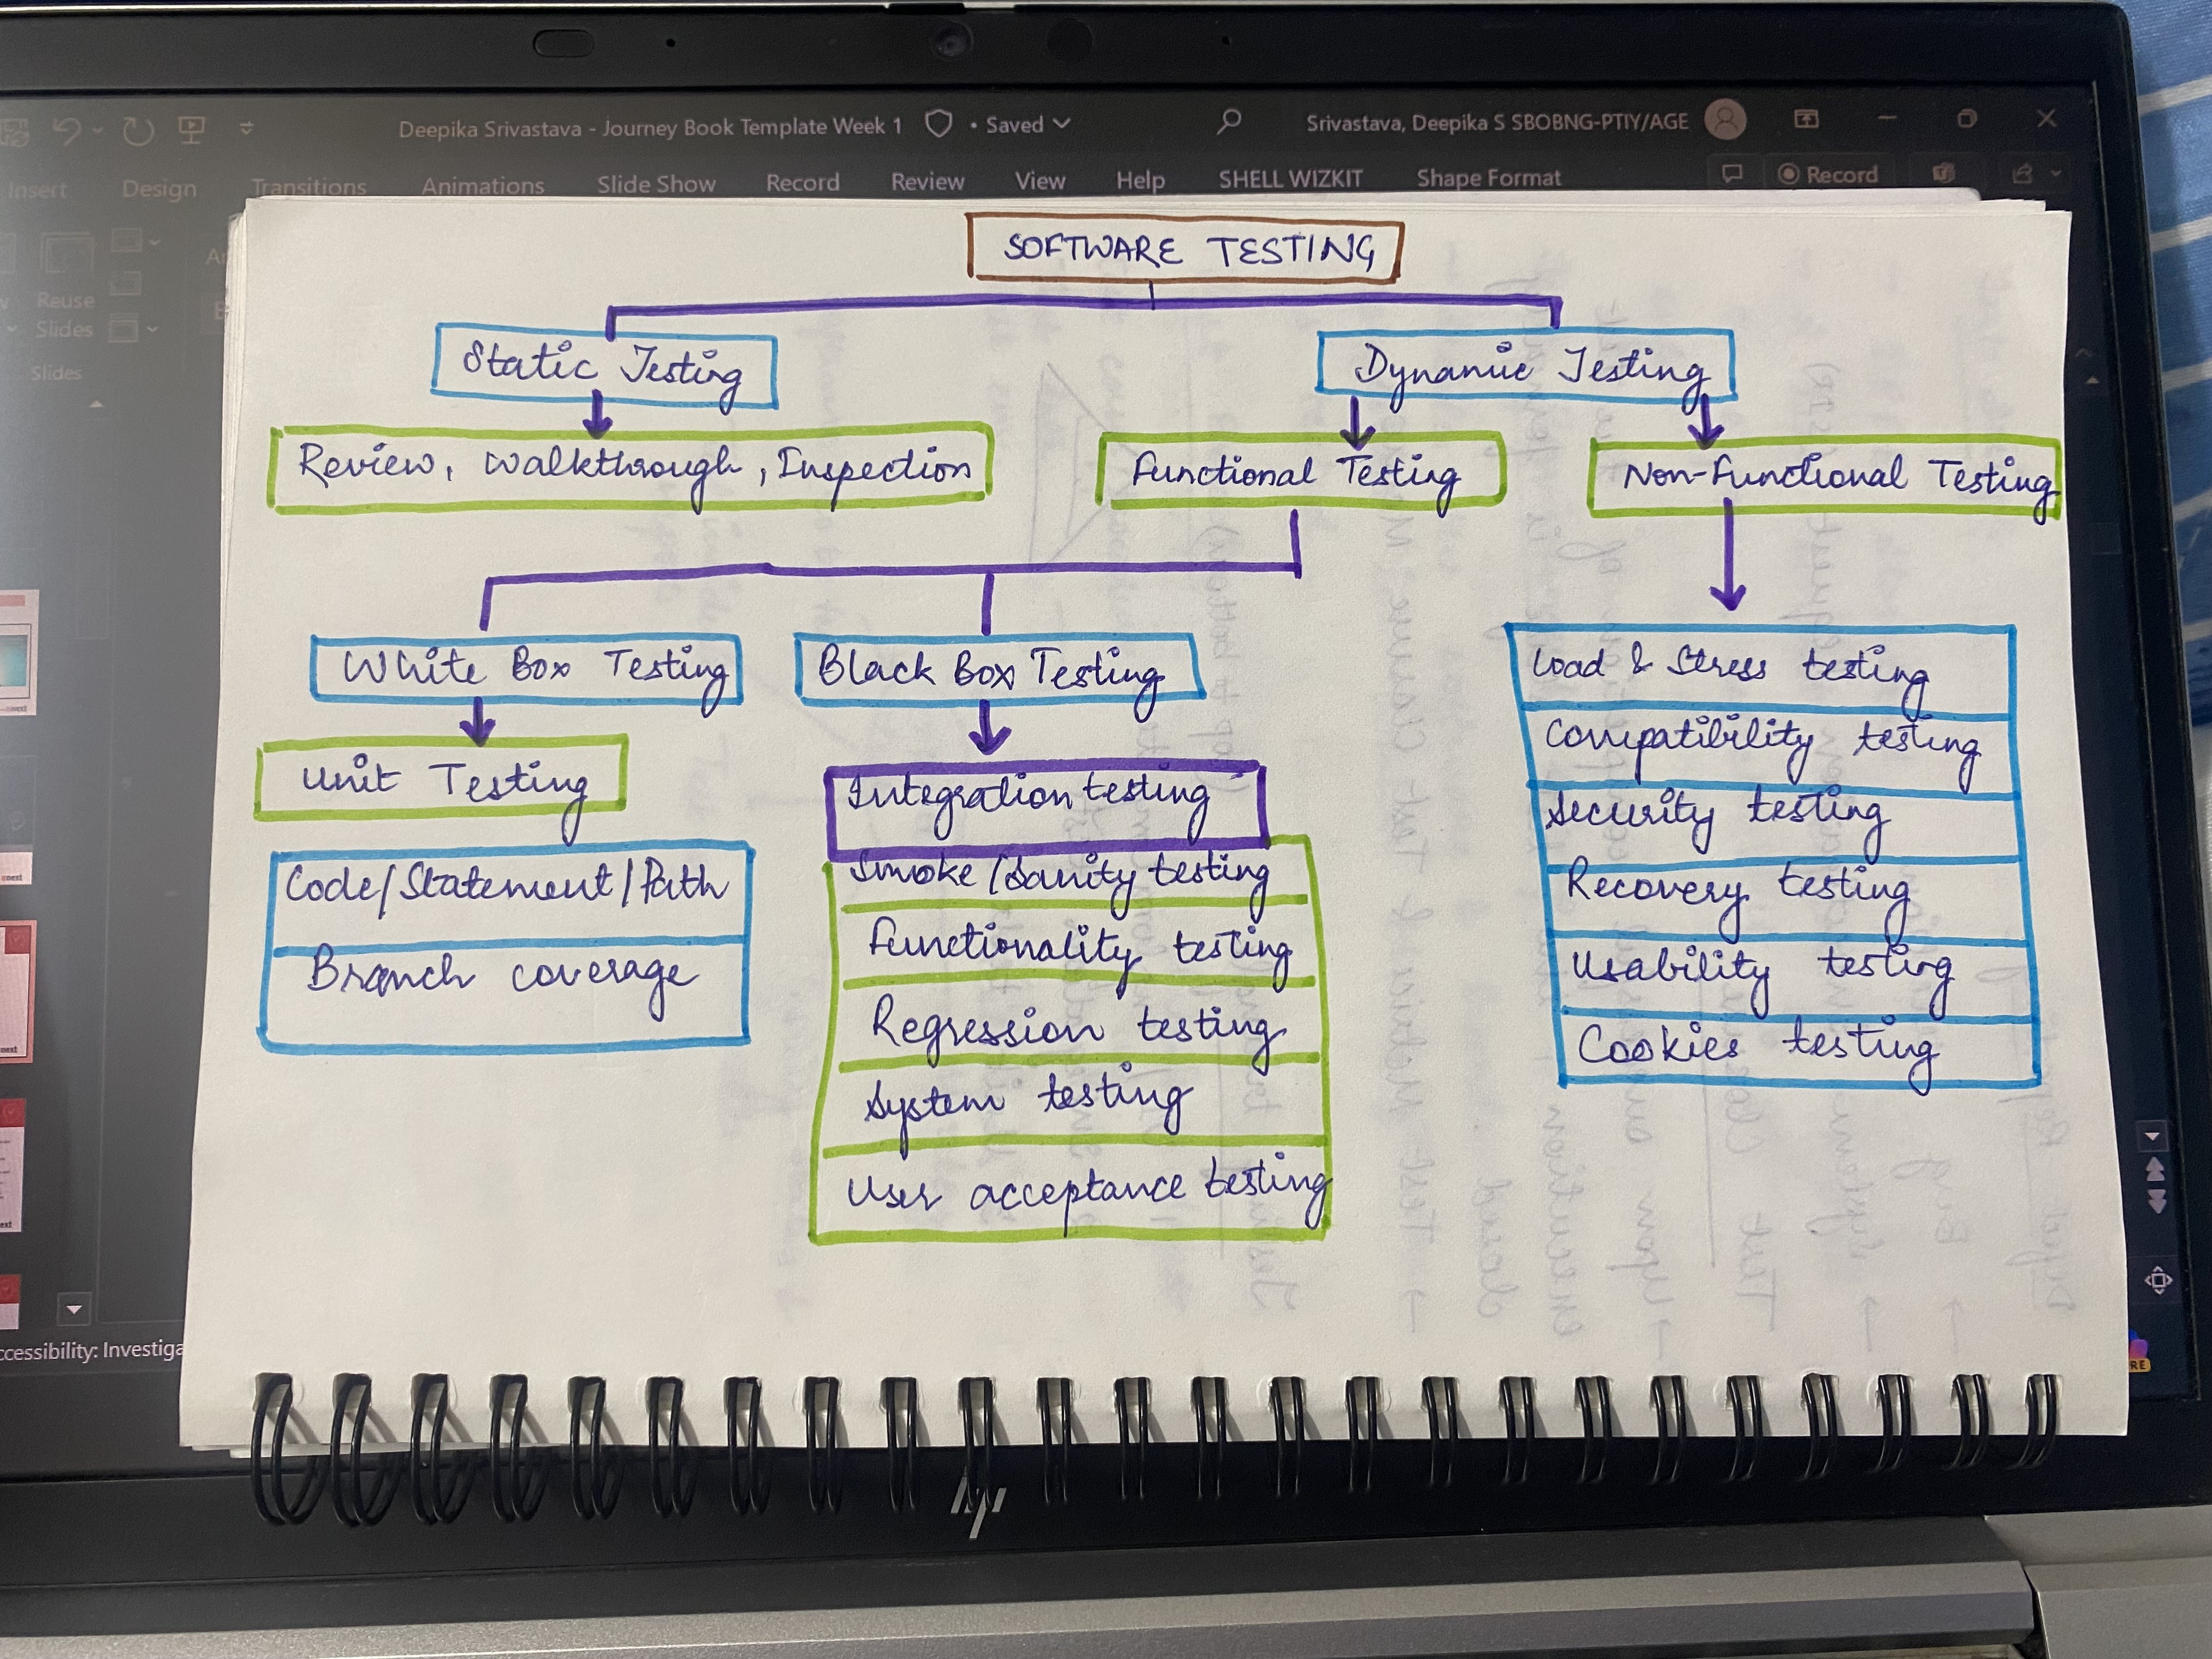 Deepika Srivastava - Journey Book Template Week 1 • Saved
Srivastava, Deepika S SBOBNG-PTIY/AGE
Insert Design Transitions Animations Slide Show Record Review View Help SHELL WIZKIT Shape Format Record
Reuse
Slides
Slides
SOFTWARE TESTING
Static Testing
Dynamic Testing
Review, Walkthrough, Inspection
Functional Testing
Non-Functional Testing
White Box Testing
Black Box Testing
Unit Testing
Code/Statement/Path
Branch coverage
Integration testing
Smoke/Sanity testing
Functionality testing
Regression testing
System testing
User acceptance testing
Load & Stress testing
Compatibility testing
Security testing
Recovery testing
Usability testing
Cookies testing
ccessibility: Investiga
hp